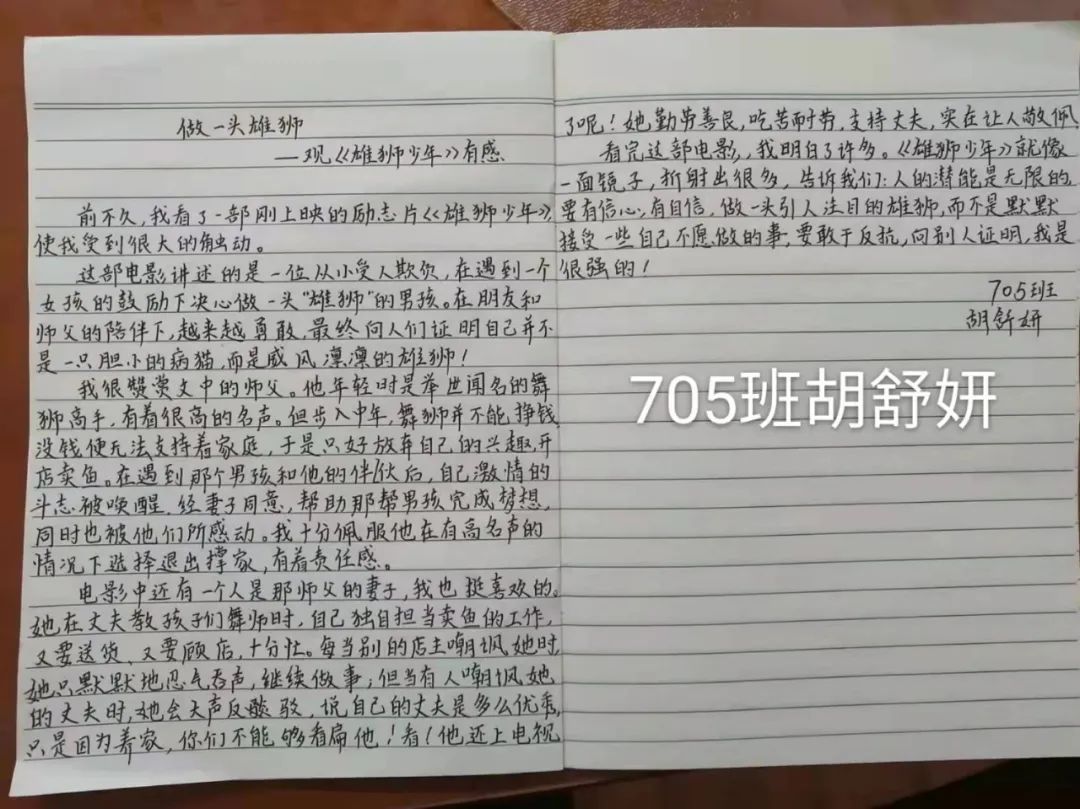 做一头雄狮
——观《雄狮少年》有感
前不久,我看了一部刚上映的励志片《雄狮少年》,
使我受到很大的触动。
这部电影讲述的是一位从小受人欺负,在遇到一个
女孩的鼓励下决心做一头“雄狮”的男孩。在朋友和
师父的陪伴下,越来越勇敢,最终向人们证明自己并不
是一只胆小的病猫,而是威风凛凛的雄狮!
我很赞赏文中的师父。他年轻时是举世闻名的舞
狮高手,有着很高的名声。但步入中年,舞狮并不能挣钱,
没钱便无法支持着家庭,于是只好放弃自己的兴趣,开
店卖鱼。在遇到那个男孩和他的伴伙后,自己激情的
斗志被唤醒,经妻子同意,帮助那帮男孩完成梦想,
同时也被他们所感动。我十分佩服他在有高名声的
情况下选择退出撑家,有着责任感。
电影中还有一个人是那师父的妻子,我也挺喜欢的。
她在丈夫教孩子们舞师时,自己独自担当卖鱼的工作,
又要送货、又要顾店,十分忙。每当别的店主嘲讽她时,
她只默默地忍气吞声,继续做事;但当有人嘲讽她
的丈夫时,她会大声反驳,说自己的丈夫是多么优秀,
只是因为养家,你们不能够看扁他!看!他还上电视
了呢!她勤劳善良,吃苦耐劳,支持丈夫,实在让人敬佩。
看完这部电影,我明白了许多。《雄狮少年》就像
一面镜子,折射出很多,告诉我们:人的潜能是无限的,
要有信心,有自信,做一头引人注目的雄狮,而不是默默
接受一些自己不愿做的事,要敢于反抗,向别人证明,我是
很强的!
705班
胡舒妍
705班胡舒妍